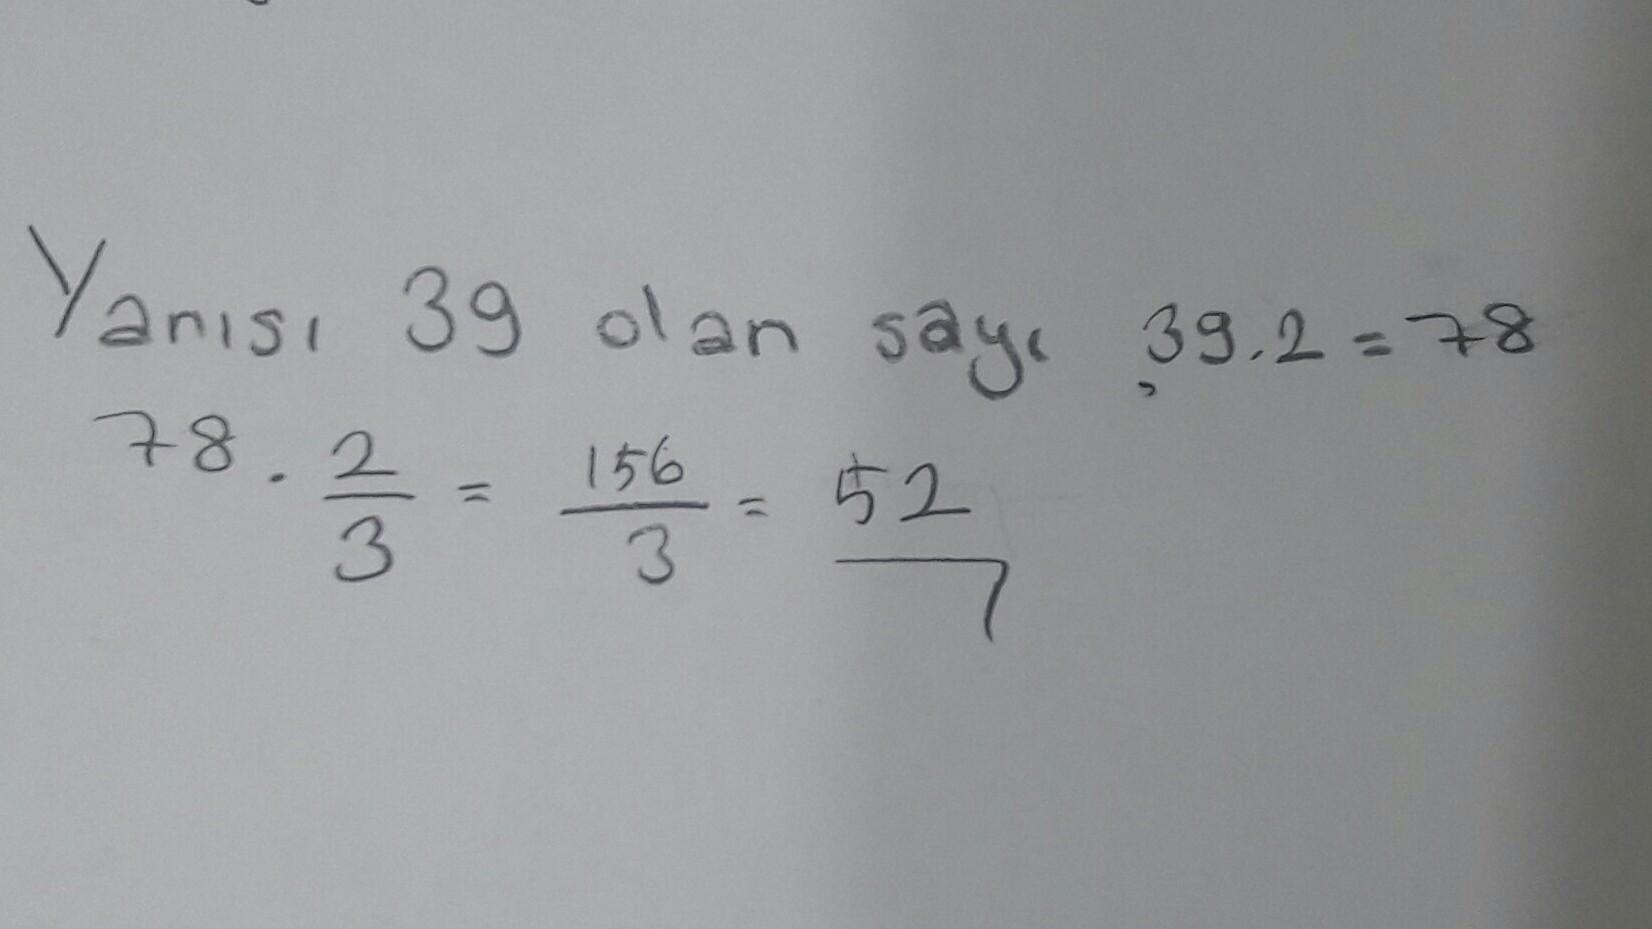 Yarısı 39 olan sayı, 39.2 = 78
78 . 2/3 = 156/3 = 52